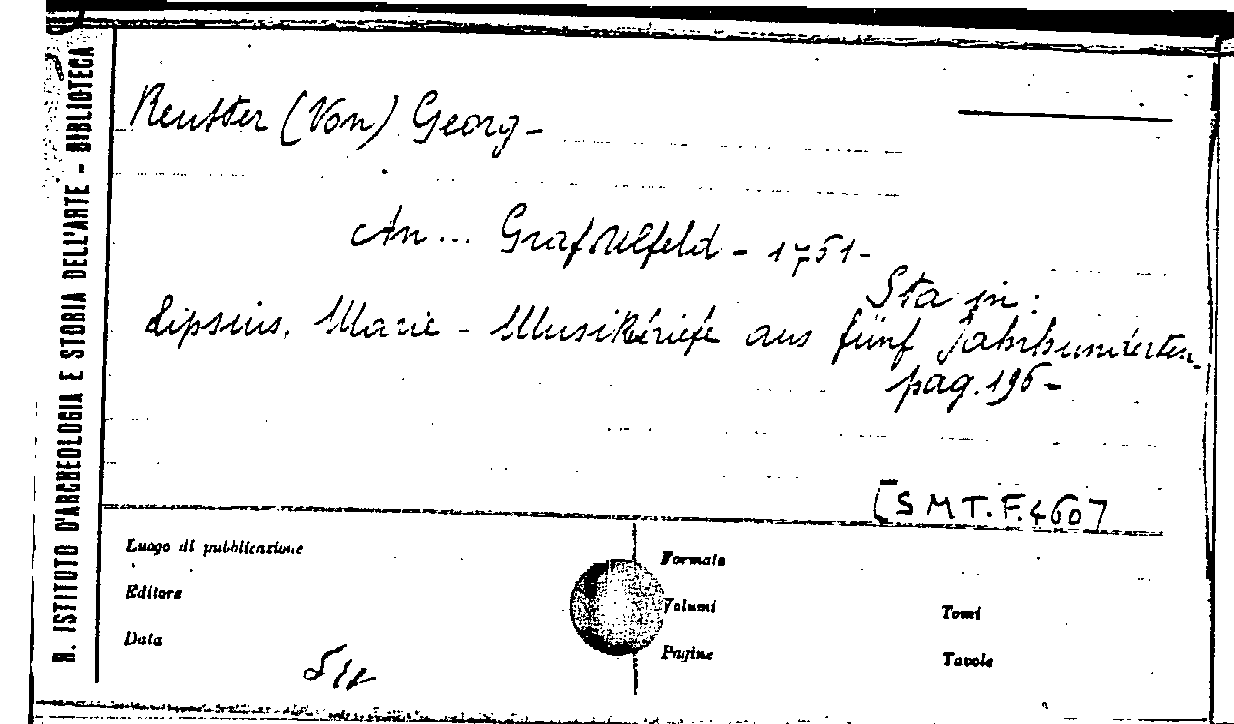 R. ISTITUTO D'ARCHEOLOGIA E STORIA DELL'ARTE - BIBLIOTECA
Reutter (Von) Georg -
An... Graf Ulfeld - 1751 -
Sta in:
Lipsius, Marie - Musikbriefe aus fünf Jahrhunderten.
pag. 196 -
[SMT.F.460]
Luogo di pubblicazione
Formato
Editore
Volumi
Tomi
Data
Pagine
Tavole